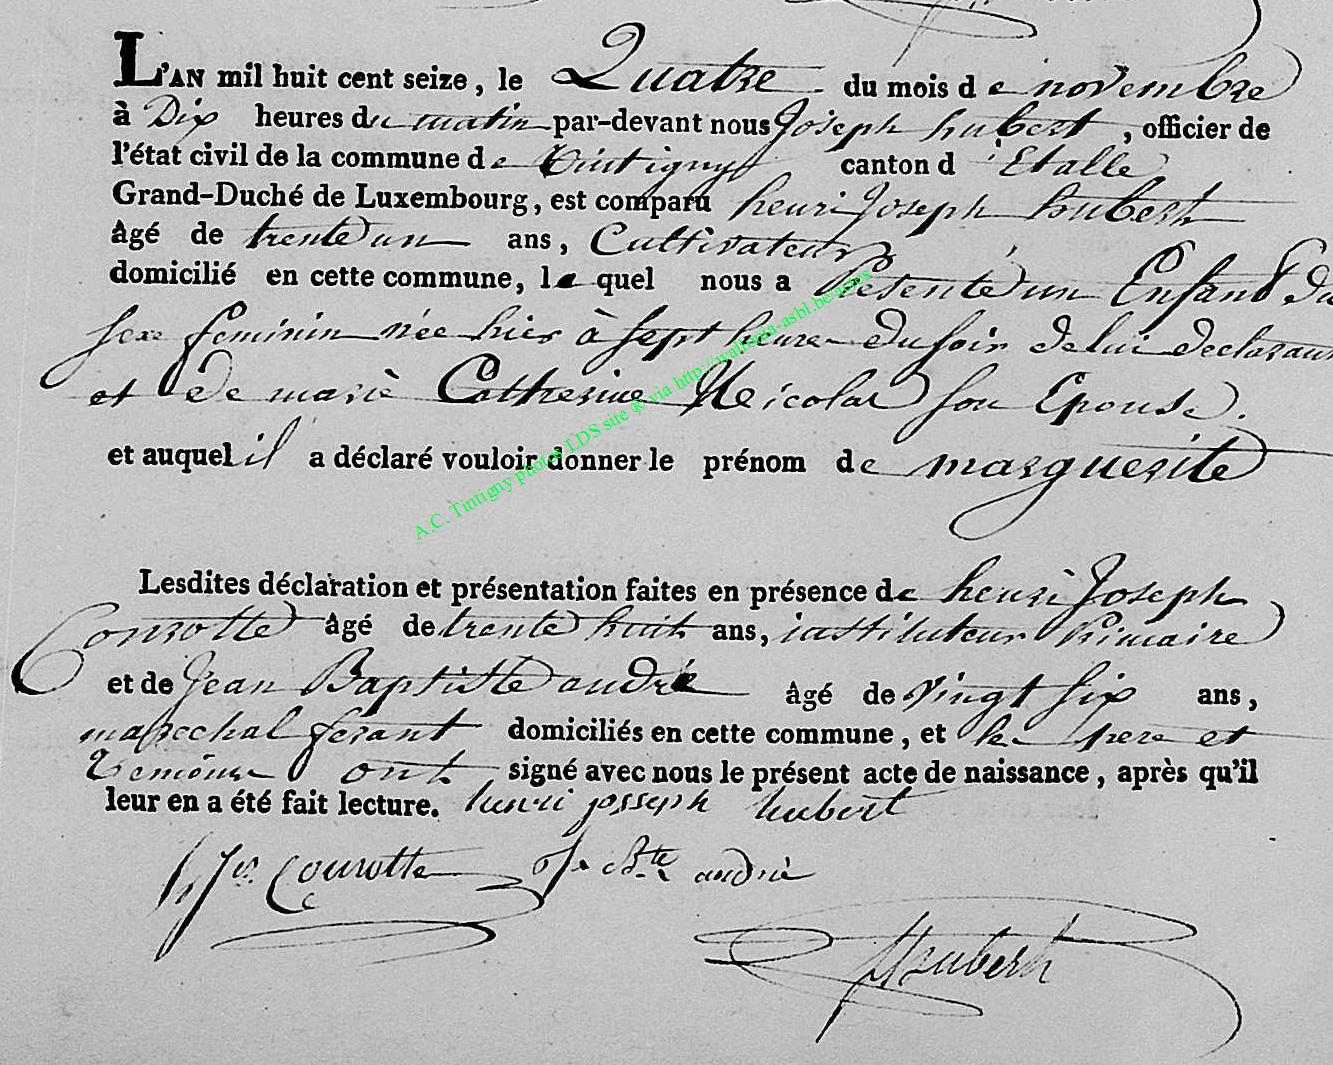 L'AN mil huit cent seize, le Quatre du mois de novembre
à Dix heures du matin par-devant nous Joseph hubert, officier de
l'état civil de la commune de tintigny canton d'Etalle
Grand-Duché de Luxembourg, est comparu henri Joseph hubert
âgé de trente un ans, Cultivateur
domicilié en cette commune, lequel nous a Présenté un Enfant du
sexe feminin née hier à sept heure du soir de lui declarant
et de marie Catherine Nicolas son Epouse.
et auquel il a déclaré vouloir donner le prénom de marguerite
A.C. Tintigny photos LDS site @ via http://wallonia-asbl.be/actes
Lesdites déclaration et présentation faites en présence de henri Joseph
Courotte âgé de trente huit ans, instituteur Primaire
et de Jean Baptiste andré âgé de vingt six ans,
marechal ferant domiciliés en cette commune, et le pere et
temoins ont signé avec nous le présent acte de naissance, après qu'il
leur en a été fait lecture. henri josseph hubert
hJh Courotte J. Bte andrié
JHubert